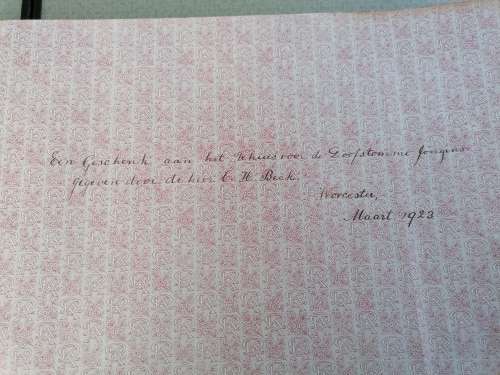 Een Geschenk aan het Tehuis voor de Doofstomme Jongens
gegeven door de heer C. H. Beck.
Worcester,
Maart 1923